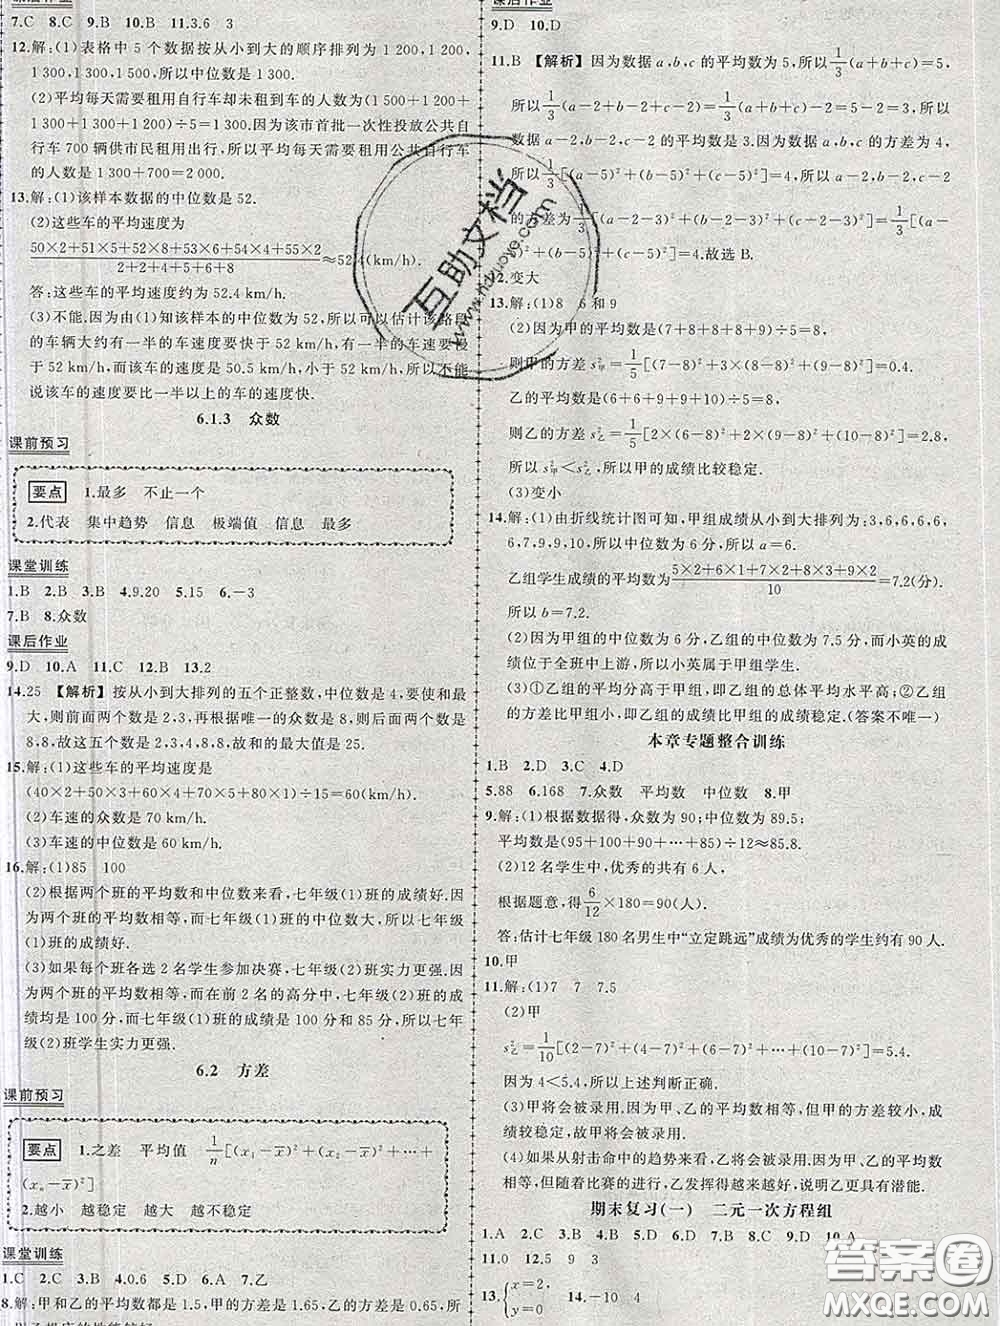 课后作业
7.C 8.C 9.B 10.B 11.3.6 3
12.解:(1)表格中5个数据按从小到大的顺序排列为1 200,1 200,
1 300,1 300,1 500,所以中位数是1 300.
(2)平均每天需要租用自行车却未租到车的人数为(1 500+1 200+
1 300+1 300+1 200)÷5=1 300.因为该市首批一次性投放公共自
行车700辆供市民租用出行,所以平均每天需要租用公共自行车
的人数是1 300+700=2 000.
13.解:(1)该样本数据的中位数是52.
(2)这些车的平均速度为
(50×2+51×5+52×8+53×6+54×4+55×2)/(2+2+4+5+6+8)≈52.4(km/h).
答:这些车的平均速度约为52.4 km/h.
(3)不能.因为由(1)知该样本的中位数为52,所以可以估计该路段
的车辆大约有一半的车速度要快于52 km/h,有一半的车速度要慢
于52 km/h,而该车的速度是50.5 km/h,小于52 km/h,所以不能
说该车的速度要比一半以上的车的速度快.
6.1.3 众数
课前预习
要点 1.最多 不止一个
2.代表 集中趋势 信息 极端值 信息 最多
课堂训练
1.B 2.B 3.B 4.9.20 5.15 6.-3
7.B 8.众数
课后作业
9.D 10.A 11.C 12.B 13.2
14.25 【解析】按从小到大排列的五个正整数,中位数是4,要使和最
大,则前面两个数是2,3,再根据唯一的众数是8,则后面两个数是
8,8,故这五个数是2,3,4,8,8,故和的最大值是25.
15.解:(1)这些车的平均速度是
(40×2+50×3+60×4+70×5+80×1)÷15=60(km/h).
(2)车速的众数是70 km/h.
(3)车速的中位数是60 km/h.
16.解:(1)85 100
(2)根据两个班的平均数和中位数来看,七年级(1)班的成绩好.因
为两个班的平均数相等,而七年级(1)班的中位数大,所以七年级
(1)班的成绩好.
(3)如果每个班各选2名学生参加决赛,七年级(2)班实力更强.因
为两个班的平均数相等,而在前2名的高分中,七年级(2)班的成绩
均是100分,而七年级(1)班的成绩是100分和85分,所以七年
级(2)班学生实力更强.
6.2 方差
课前预习
要点 1.之差 平均值 1/n[(x₁-x̄)²+(x₂-x̄)²+…+
(xₙ-x̄)²]
2.越小 越稳定 越大 越不稳定
课堂训练
1.C 2.C 3.B 4.0.6 5.D 6.A 7.乙
8.解:甲和乙的平均数都是1.5,甲的方差是1.65,乙的方差是0.65,所
课后作业
9.D 10.D
11.B 【解析】因为数据a,b,c的平均数为5,所以1/3(a+b+c)=5,
所以1/3(a-2+b-2+c-2)=1/3(a+b+c)-2=5-2=3,所以
数据a-2,b-2,c-2的平均数是3.因为数据a,b,c的方差为4,
所以1/3[(a-5)²+(b-5)²+(c-5)²]=4,所以a-2,b-2,c-2
的方差为=1/3[(a-2-3)²+(b-2-3)²+(c-2-3)²]=1/3[(a-
5)²+(b-5)²+(c-5)²]=4.故选B.
12.变大
13.解:(1)8 6和9
(2)因为甲的平均数为(7+8+8+8+9)÷5=8,
则甲的方差s²甲=1/5[(7-8)²+3×(8-8)²+(9-8)²]=0.4,
乙的平均数是(6+6+9+9+10)÷5=8,
则乙的方差s²乙=1/5[2×(6-8)²+2×(9-8)²+(10-8)²]=2.8,
所以s²甲<s²乙,所以甲的成绩比较稳定.
(3)变小
14.解:(1)由折线统计图可知,甲组成绩从小到大排列为:3,6,6,6,6,
6,7,9,9,10,所以中位数为6分,所以a=6.
乙组学生成绩的平均数为(5×2+6×1+7×2+8×3+9×2)/10=7.2(分)
所以b=7.2.
(2)因为甲组的中位数为6分,乙组的中位数为7.5分,而小英的成
绩位于全班中上游,所以小英属于甲组学生.
(3)①乙组的平均分高于甲组,即乙组的总体平均水平高;②乙组
的方差比甲组小,即乙组的成绩比甲组的成绩稳定.(答案不唯一)
本章专题整合训练
1.B 2.D 3.C 4.D
5.88 6.168 7.众数 平均数 中位数 8.甲
9.解:(1)根据数据得,众数为90;中位数为89.5;
平均数是(95+100+90+…+85)÷12≈85.8.
(2)12名学生中,优秀的共有6人,
根据题意,得6/12×180=90(人).
答:估计七年级180名男生中“立定跳远”成绩为优秀的学生约有90人.
10.甲
11.解:(1)7 7 7.5
(2)甲
s²乙=1/10[(2-7)²+(4-7)²+(6-7)²+…+(10-7)²]=5.4.
因为4<5.4,所以上述判断正确.
(3)甲将会被录用.因为甲、乙的平均数相等,但甲的方差较小,成
绩较稳定,故甲将会被录用.
(4)如果从射击命中的趋势来看,乙将会被录用.因为甲、乙的平均数
相等,但随着比赛的进行,乙发挥得越来越好,说明乙更具有潜能.
期末复习(一) 二元一次方程组
1.A 2.C 3.C 4.B 5.A 6.D 7.B 8.D 9.D 10.A
11.0 12.5 9 3
13.{x=2, y=0 14.-10 4
互助文档
www.hdzuoye.com
答案圈
MXQE.COM